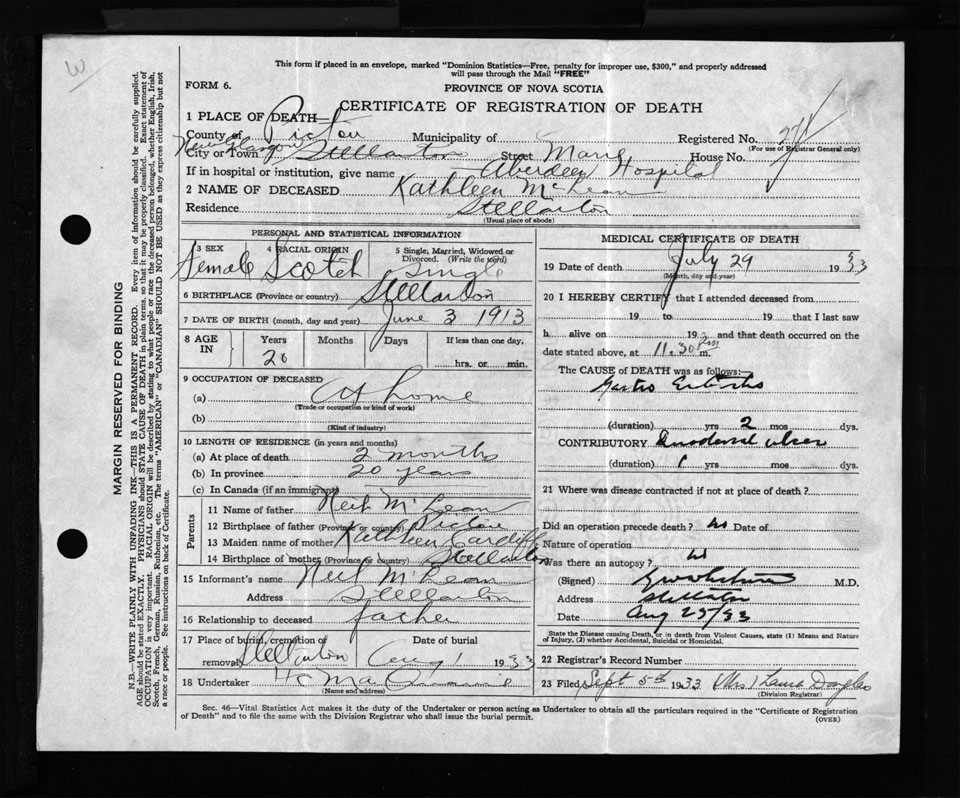 W
This form if placed in an envelope, marked "Dominion Statistics—Free, penalty for improper use, $300," and properly addressed
will pass through the Mail "FREE"
FORM 6.
PROVINCE OF NOVA SCOTIA
CERTIFICATE OF REGISTRATION OF DEATH
1 PLACE OF DEATH—
County of Pictou Municipality of Registered No.
(For use of Registrar General only)
New Glasgow
City or Town Stellarton Street Marsh House No.
If in hospital or institution, give name Aberdeen Hospital
2 NAME OF DECEASED Kathleen McLean
Residence Stellarton
(Usual place of abode)
PERSONAL AND STATISTICAL INFORMATION
3 SEX 4 RACIAL ORIGIN 5 Single, Married, Widowed or
Divorced. (Write the word)
Female Scotch Single
6 BIRTHPLACE (Province or country) Stellarton
7 DATE OF BIRTH (month, day and year) June 3 1913
8 AGE IN Years Months Days If less than one day,
20 hrs. or min.
9 OCCUPATION OF DECEASED
(a) At home
(Trade or occupation or kind of work)
(b)
(Kind of industry)
10 LENGTH OF RESIDENCE (in years and months)
(a) At place of death 2 months
(b) In province 20 years
(c) In Canada (if an immigrant)
Parents
11 Name of father Neil McLean
12 Birthplace of father (Province or country) Pictou
13 Maiden name of mother Kathleen Cardiff
14 Birthplace of mother (Province or country) Stellarton
15 Informant's name Neil McLean
Address Stellarton
16 Relationship to deceased father
17 Place of burial, cremation or Date of burial
removal Stellarton Aug 1 1933
18 Undertaker
(Name and address)
MEDICAL CERTIFICATE OF DEATH
19 Date of death July 29 1933
(Month, day and year)
20 I HEREBY CERTIFY that I attended deceased from
19 to 19 that I last saw
h alive on 19 and that death occurred on the
date stated above, at 11.30 pm m.
The CAUSE of DEATH was as follows:
Gastro Enteritis
(duration) yrs 2 mos dys.
CONTRIBUTORY Duodenal ulcer
(duration) 1 yrs mos dys.
21 Where was disease contracted if not at place of death?
Did an operation precede death? no Date of
Nature of operation
Was there an autopsy? no
(Signed) M.D.
Address Stellarton
Date Aug 25/33
State the Disease causing Death, or in death from Violent Causes, state (1) Means and Nature
of Injury, (2) whether Accidental, Suicidal or Homicidal.
22 Registrar's Record Number
23 Filed Sept 5th 1933 (Mrs) Laura Douglas
(Division Registrar)
Sec. 46—Vital Statistics Act makes it the duty of the Undertaker or person acting as Undertaker to obtain all the particulars required in the "Certificate of Registration
of Death" and to file the same with the Division Registrar who shall issue the burial permit.
(OVER)
MARGIN RESERVED FOR BINDING
N.B.—WRITE PLAINLY WITH UNFADING INK—THIS IS A PERMANENT RECORD. Every item of information should be carefully supplied.
AGE should be stated EXACTLY. PHYSICIANS should STATE CAUSE OF DEATH in plain terms, so that it may be properly classified. Exact statement of
OCCUPATION is very important. RACIAL ORIGIN will be described by stating to what people or race the deceased person belonged, whether English, Irish,
Scotch, French, German, Russian, Ruthenian, etc. The terms "AMERICAN" or "CANADIAN" SHOULD NOT BE USED as they express citizenship but not
a race or people. See instructions on back of Certificate.